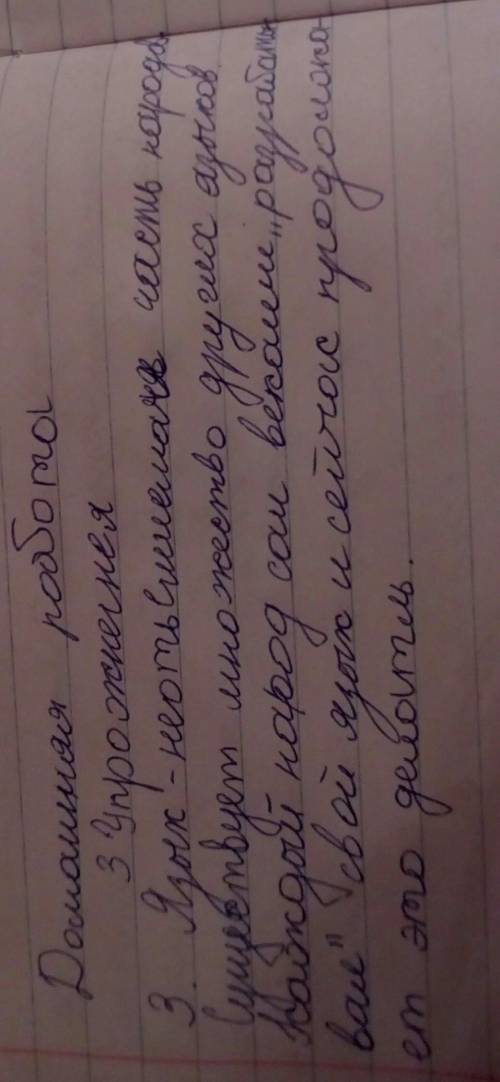 Домашняя работа
3 Упрожнения
3. Язык - неотьемлемая часть народа.
Существует множество других языков.
Каждый народ сам веками „разрабаты-
вал" свой язык и сейчас продолжа-
ет это делать.